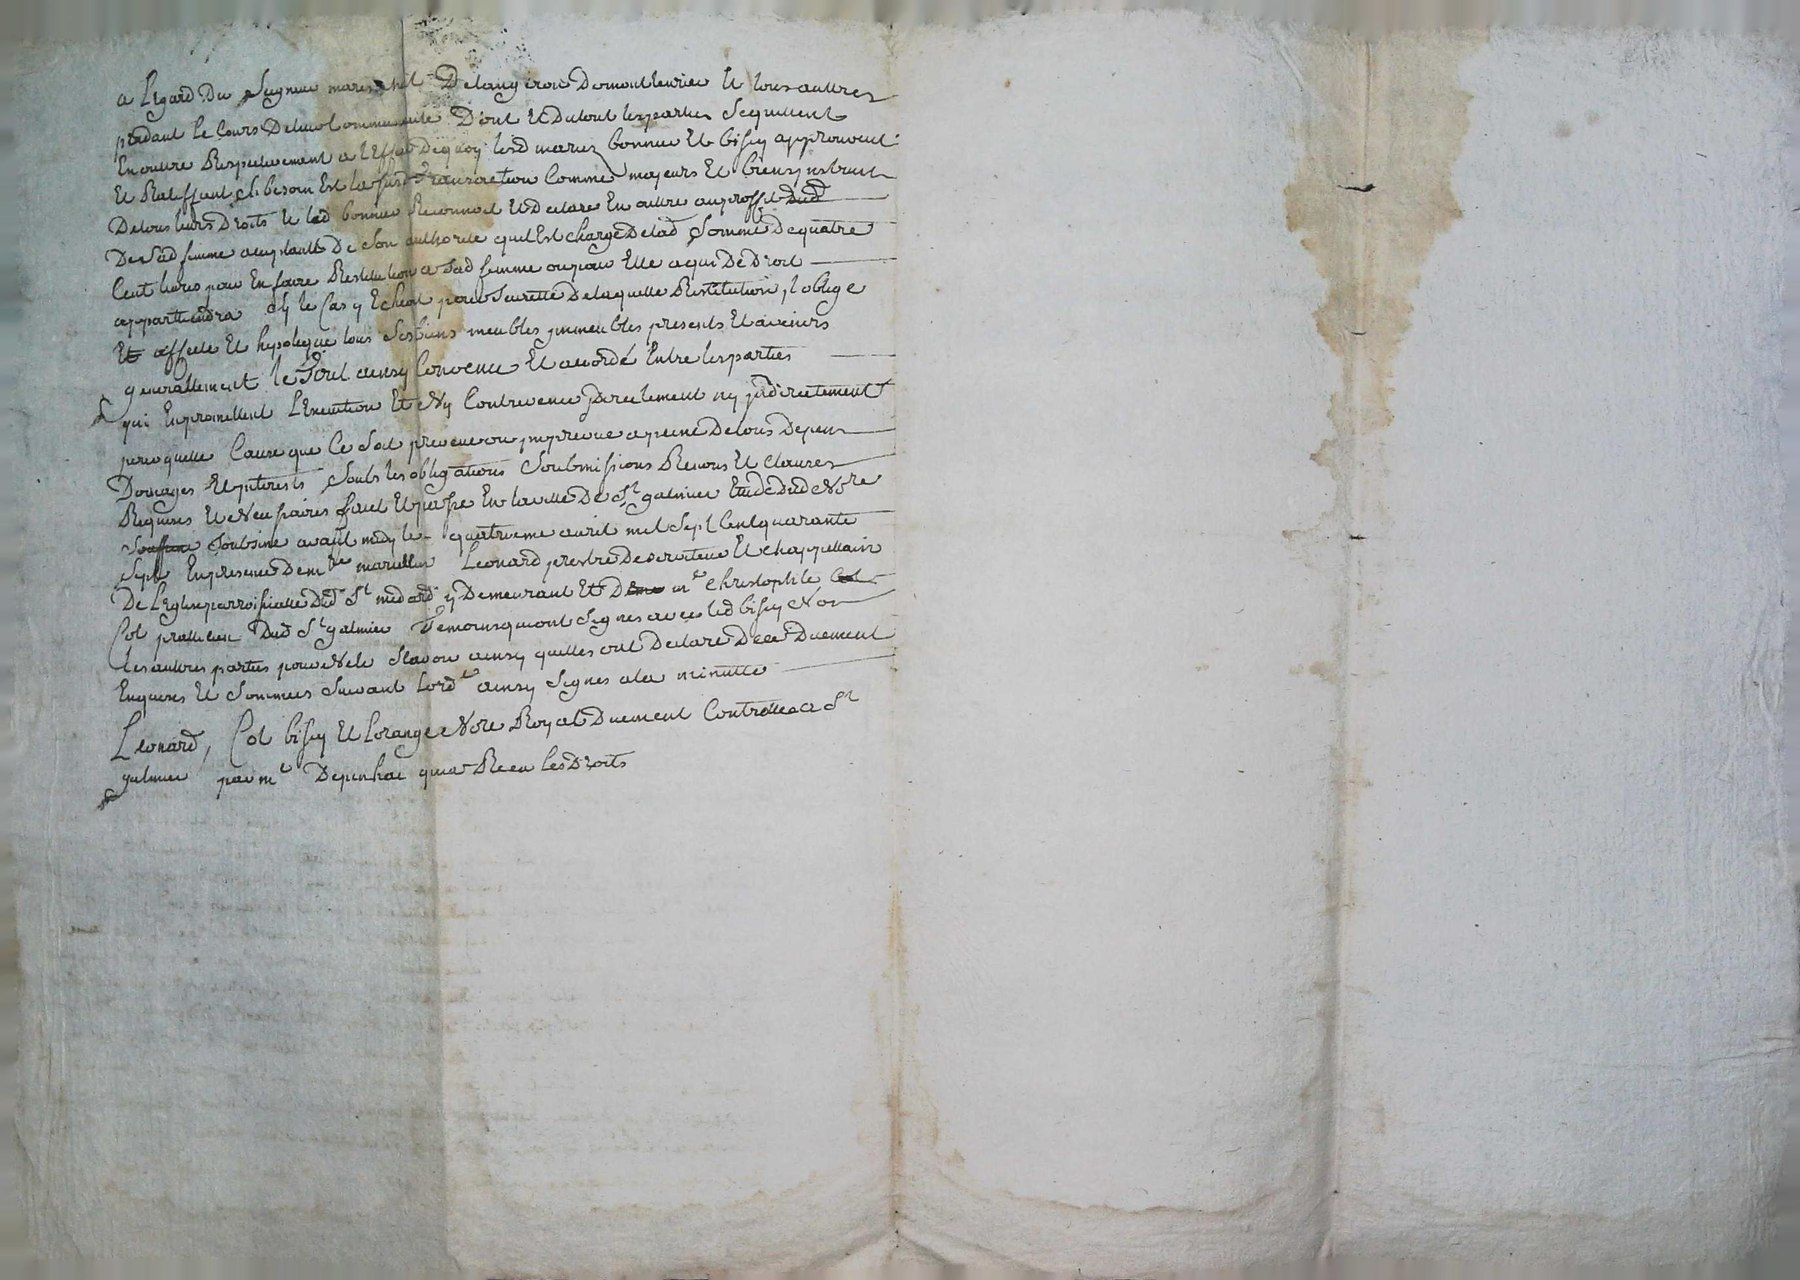 a Legard Du Seigneur mareschal De Langeron De montleurier Et tous auttres
pendant Le Cours De leur Communaute Dont Et Du tout les parties Se quittent
En outtre Respectivement a l'Effet De quoy lesd mariez bonnier Et bissy approuvent
Et Ratiffient Sy besoin Est la susd Transaction Comme majeurs Et bien ynstruits
De tous leurs Droits Et led bonnier Reconnoit Et Declare En outtre au proffit Dud
De Sad femme aceptante De Son authorité quil Est chargé De lad Somme De quatre
Cent livres pour En faire Restitution a Sad femme ou pour Elle a qui De Droit
appartiendra Sy le Cas y Echeoit pour Seurette De laquelle Restitution yl oblige
Et affecte Et hypoteque tous Ses biens meubles ynmeubles presents Et avenirs
generallement le Tout ainsy Convenu Et acordé Entre les parties
qui En promettent L'Execution Et Ny Contrevenir Directement ny yndirectement
pour quelle Cause que Ce Soit preveue ou ympreveue a peine De tous Depens
Domages Et ynterests Soubs les obligations Soubmissions Renons Et Clauzes
Requises Et Necessaires fait Et passe En la ville De St galmier Etude Dud Nore
Soubsine avant midy le quatrieme avril mil Sept Cent quarante
Sept En presence De mre Leonard prestre Et chappellain
De Leglise parroissialle Dud St medard y Demeurant Et De me Christophle Col
Col praticien Dud St galmier Temoins qui ont Signes avec led bissy Non
les auttres parties pour Ne le Scavoir ainsy quelles ont Declare De ce Duement
Enquises Et Sommees Suivant Lordce ainsy Signes a la minutte
Leonard, Col bissy Et Lorange Nore Royal Duement Controllé a St
galmier par me Depinhac qui a Receu les Droits